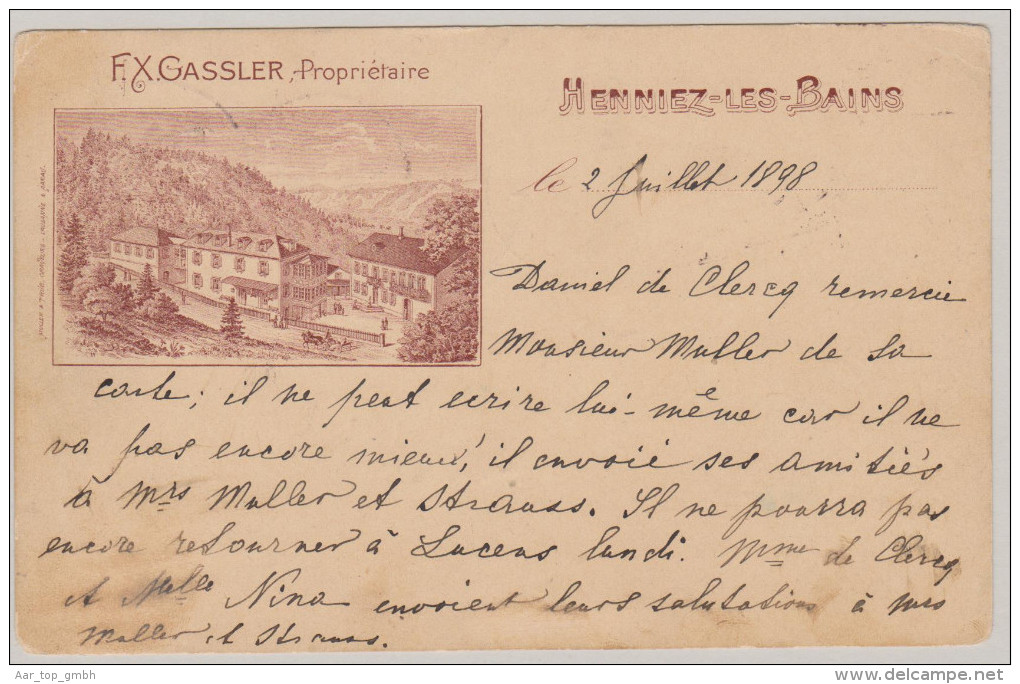 F. X. GASSLER, Propriétaire
HENNIEZ-LES-BAINS
le 2 Juillet 1898
Daniel de Clercq remercie
Monsieur Muller de sa
carte; il ne peut ecrire lui-même car il ne
va pas encore mieux, il envoie ses amitiés
à Mrs Muller et Strauss. Il ne pourra pas
encore retourner à Lucens lundi. Mme de Clercq
et Melle Nina envoient leurs salutations à Mrs
Muller et Strauss.
Aar_top_gmbh
delcampe.net